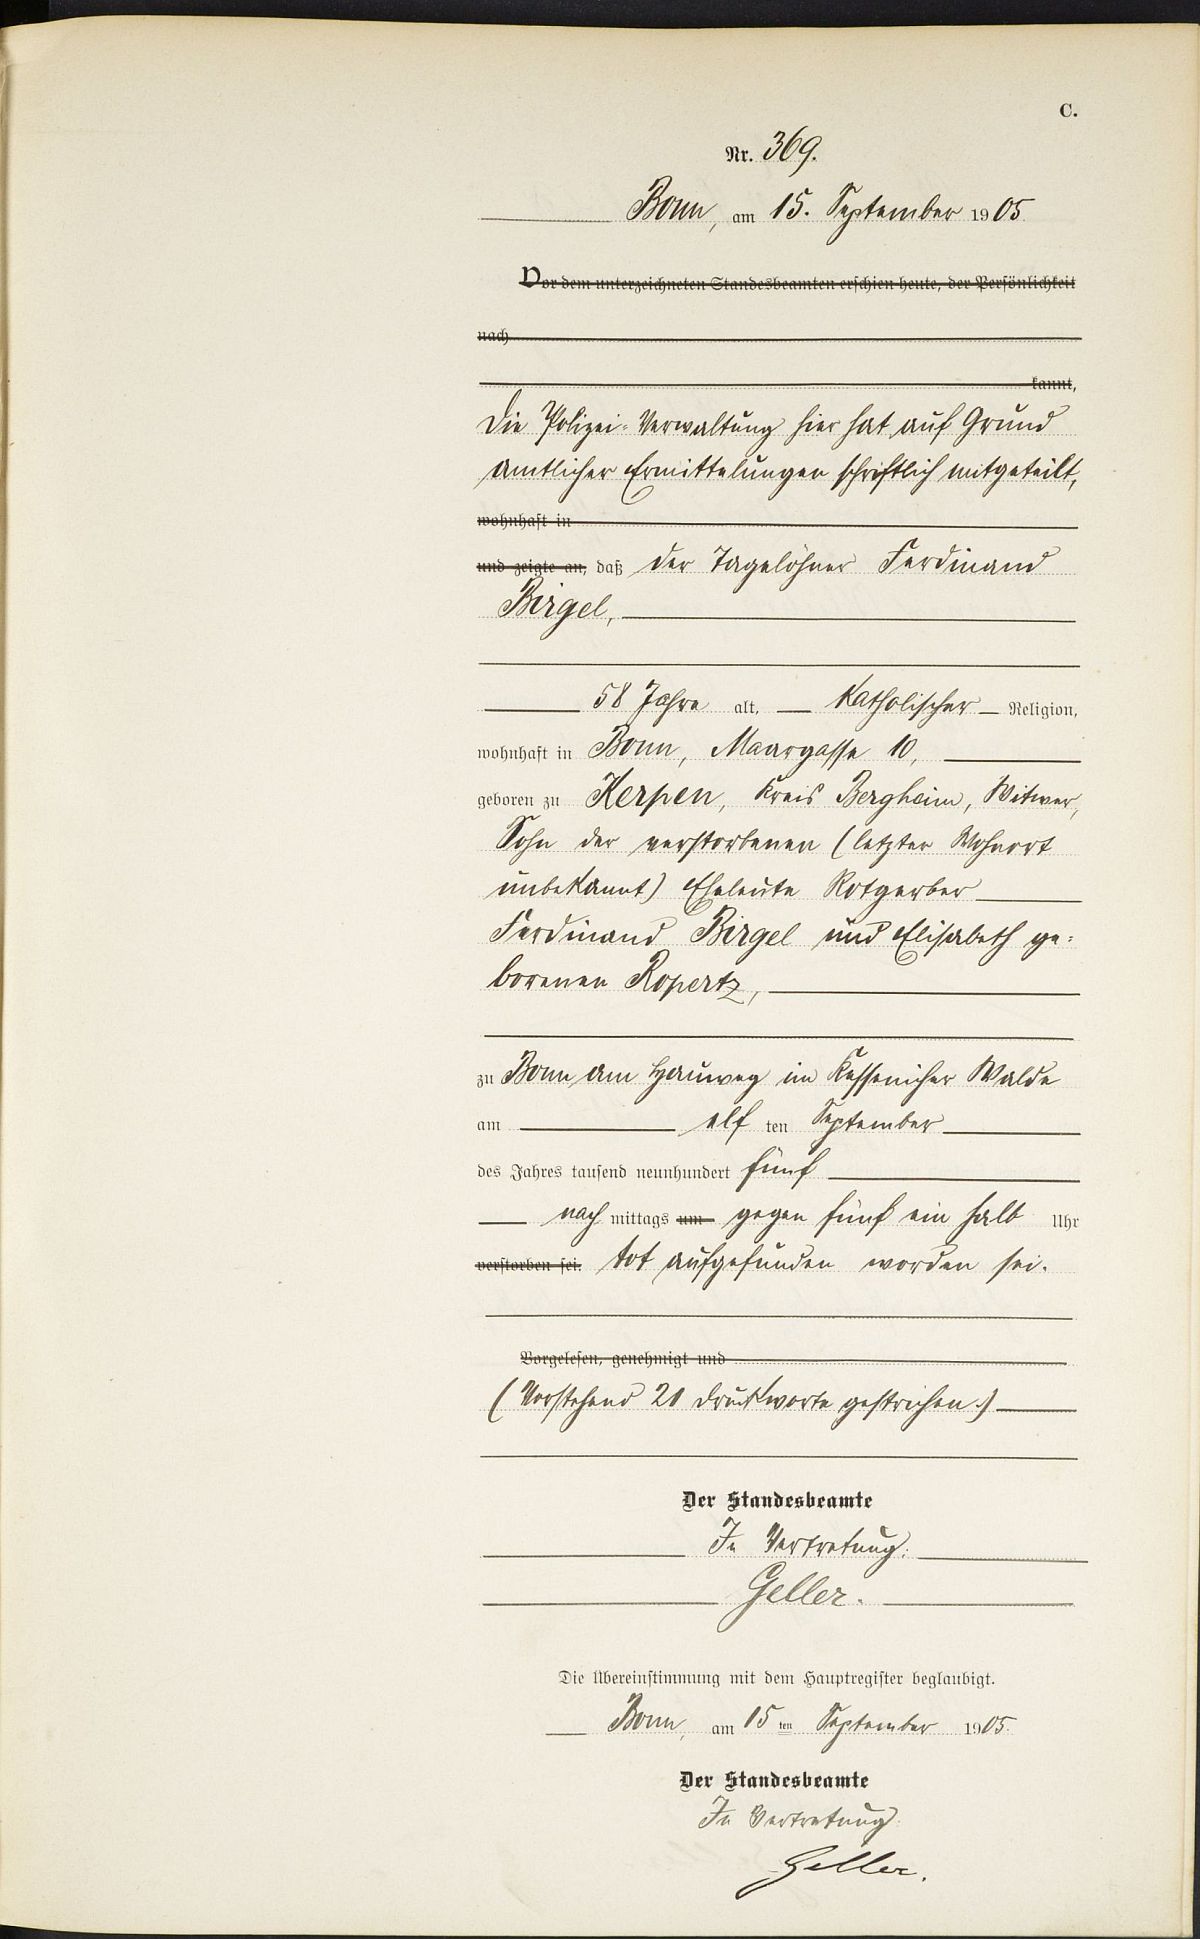 C.
Nr. 369.
Bonn, am 15. September 1905
Vor dem unterzeichneten Standesbeamten erschien heute, der Persönlichkeit
nach
kannt,
Die Polizei-Verwaltung hier hat auf Grund
amtlicher Ermittelungen schriftlich mitgeteilt,
wohnhaft in
und zeigte an, daß der Tagelöhner Ferdinand
Birgel,
58 Jahre alt, katholischer Religion,
wohnhaft in Bonn, Maargasse 10,
geboren zu Kerpen, Kreis Bergheim, Witwer,
Sohn der verstorbenen (letzter Wohnort
unbekannt) Eheleute Rotgerber
Ferdinand Birgel und Elisabeth ge-
borenen Ropertz,
zu Bonn am Hauweg im Kessenicher Walde
am elf ten September
des Jahres tausend neunhundert fünf
nach mittags um gegen fünf ein halb Uhr
verstorben sei. tot aufgefunden worden sei.
Vorgelesen, genehmigt und
(Vorstehend 20 Druckworte gestrichen.)
Der Standesbeamte
In Vertretung:
Geller.
Die Übereinstimmung mit dem Hauptregister beglaubigt.
Bonn, am 15 ten September 1905.
Der Standesbeamte
In Vertretung:
Geller.